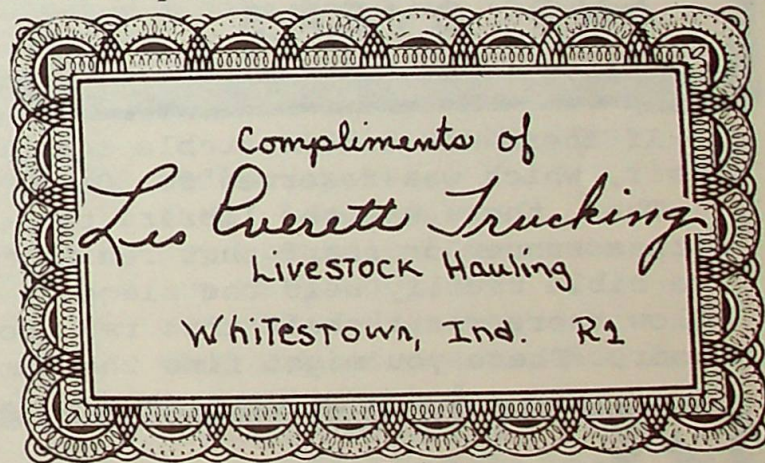 Compliments of
Everett Trucking
Livestock Hauling
Whitestown, Ind. R1